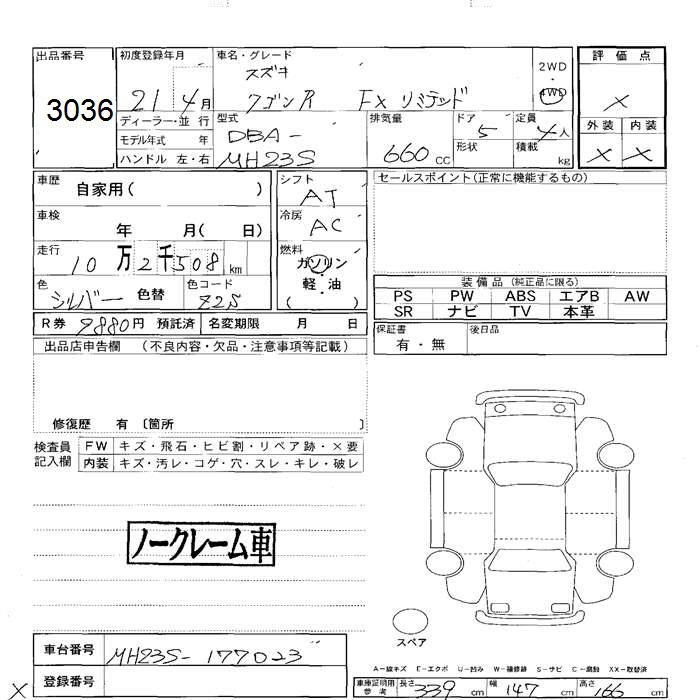 出品番号
3036
初度登録年月
21 4月
車名・グレード
スズキ
ワゴンR FX リミテッド
2WD
4WD
評価点
×
外装 内装
× ×
ディーラー・並行
モデル年式 年
ハンドル 左・右
型式
DBA-
MH23S
排気量
660 cc
ドア
5
形状
定員
4人
積載
kg
車歴
自家用( )
車検
年 月( 日)
走行
10万2千508km
色
シルバー 色替
色コード
Z2S
シフト
AT
冷房
AC
燃料
ガソリン
軽・油
( )
セールスポイント(正常に機能するもの)
装備品(純正品に限る)
PS PW ABS エアB AW
SR ナビ TV 本革
R券 9880円 預託済 名変期限 月 日
保証書
有・無
後日品
出品店申告欄 (不良内容・欠品・注意事項等記載)
修復歴 有〔箇所 〕
検査員
記入欄
FW キズ・飛石・ヒビ割・リペア跡・×要
内装 キズ・汚レ・コゲ・穴・スレ・キレ・破レ
ノークレーム車
スペア
車台番号 MH23S-177023
登録番号
×
A-線キズ E-エクボ U-凹み W-補修跡 S-サビ C-腐蝕 XX-取替済
車庫証明用
参考
長さ 339cm 幅 147cm 高さ 166cm